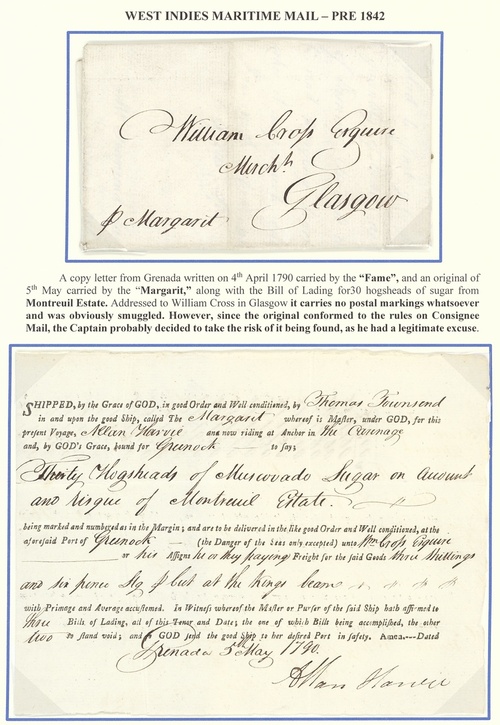 WEST INDIES MARITIME MAIL – PRE 1842
William Croſs Esquire
Merchᵗ
Glasgow
⅌ Margarit
A copy letter from Grenada written on 4th April 1790 carried by the “Fame”, and an original of
5th May carried by the “Margarit,” along with the Bill of Lading for30 hogsheads of sugar from
Montreuil Estate. Addressed to William Cross in Glasgow it carries no postal markings whatsoever
and was obviously smuggled. However, since the original conformed to the rules on Consignee
Mail, the Captain probably decided to take the risk of it being found, as he had a legitimate excuse.
SHIPPED, by the Grace of GOD, in good Order and Well conditioned, by Thomas Townsend
in and upon the good Ship, called The Margaret whereof is Maſter, under GOD, for this
preſent Voyage, Allan Harvie and now riding at Anchor in the Carenage
and, by GOD's Grace, bound for Greenock — to ſay;
Thirty Hogsheads of Muscovado Sugar on Account
and risque of Montreuil Estate.
being marked and numbered as in the Margin; and are to be delivered in the like good Order and Well conditioned, at the
aforeſaid Port of Greenock — (the Danger of the Seas only excepted) unto Wm Croſs Esquire
or his Aſſigns he or they paying Freight for the ſaid Goods three Shillings
and six pence Stg ⅌ Cwt at the Kings beam
with Primage and Average accuſtomed. In Witneſs whereof the Maſter or Purſer of the ſaid Ship hath affirmed to
three Bills of Lading, all of this Tenor and Date; the one of which Bills being accompliſhed, the other
two to ſtand void; and ſo GOD ſend the good Ship to her deſired Port in ſafety. Amen.---Dated
Grenada 5th May 1790.
Allan Harvie